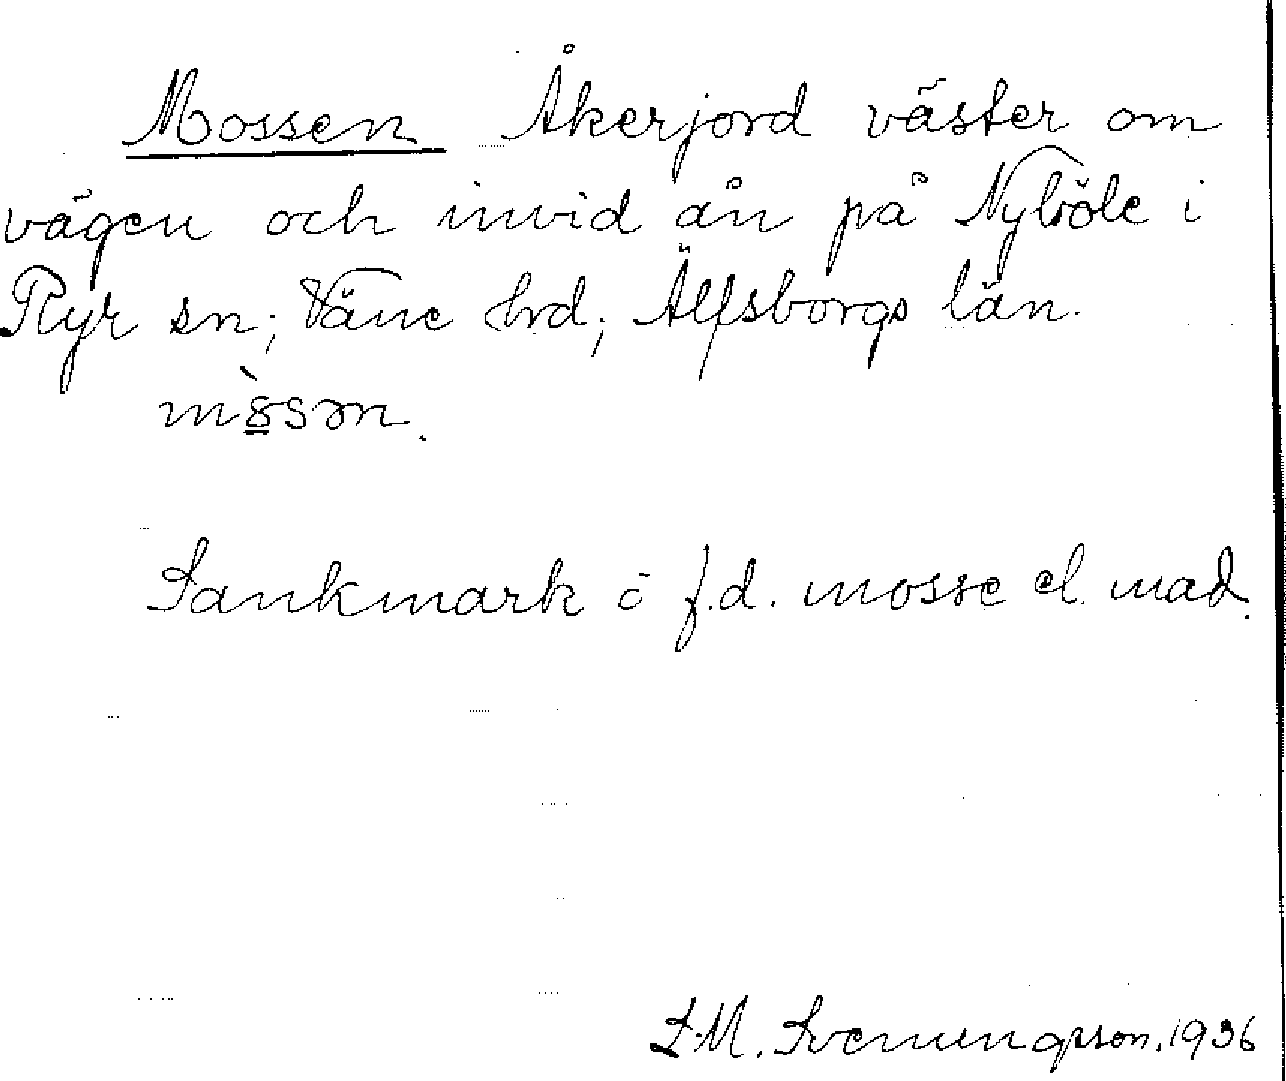 Mossen Åkerjord väster om
vägen och invid ån på Nyböle i
Ryr sn; Väne hrd; Älfsborgs län.
m8̀sən.
Sankmark o f.d. mosse el. mad.
S.M. Svenungsson. 1936